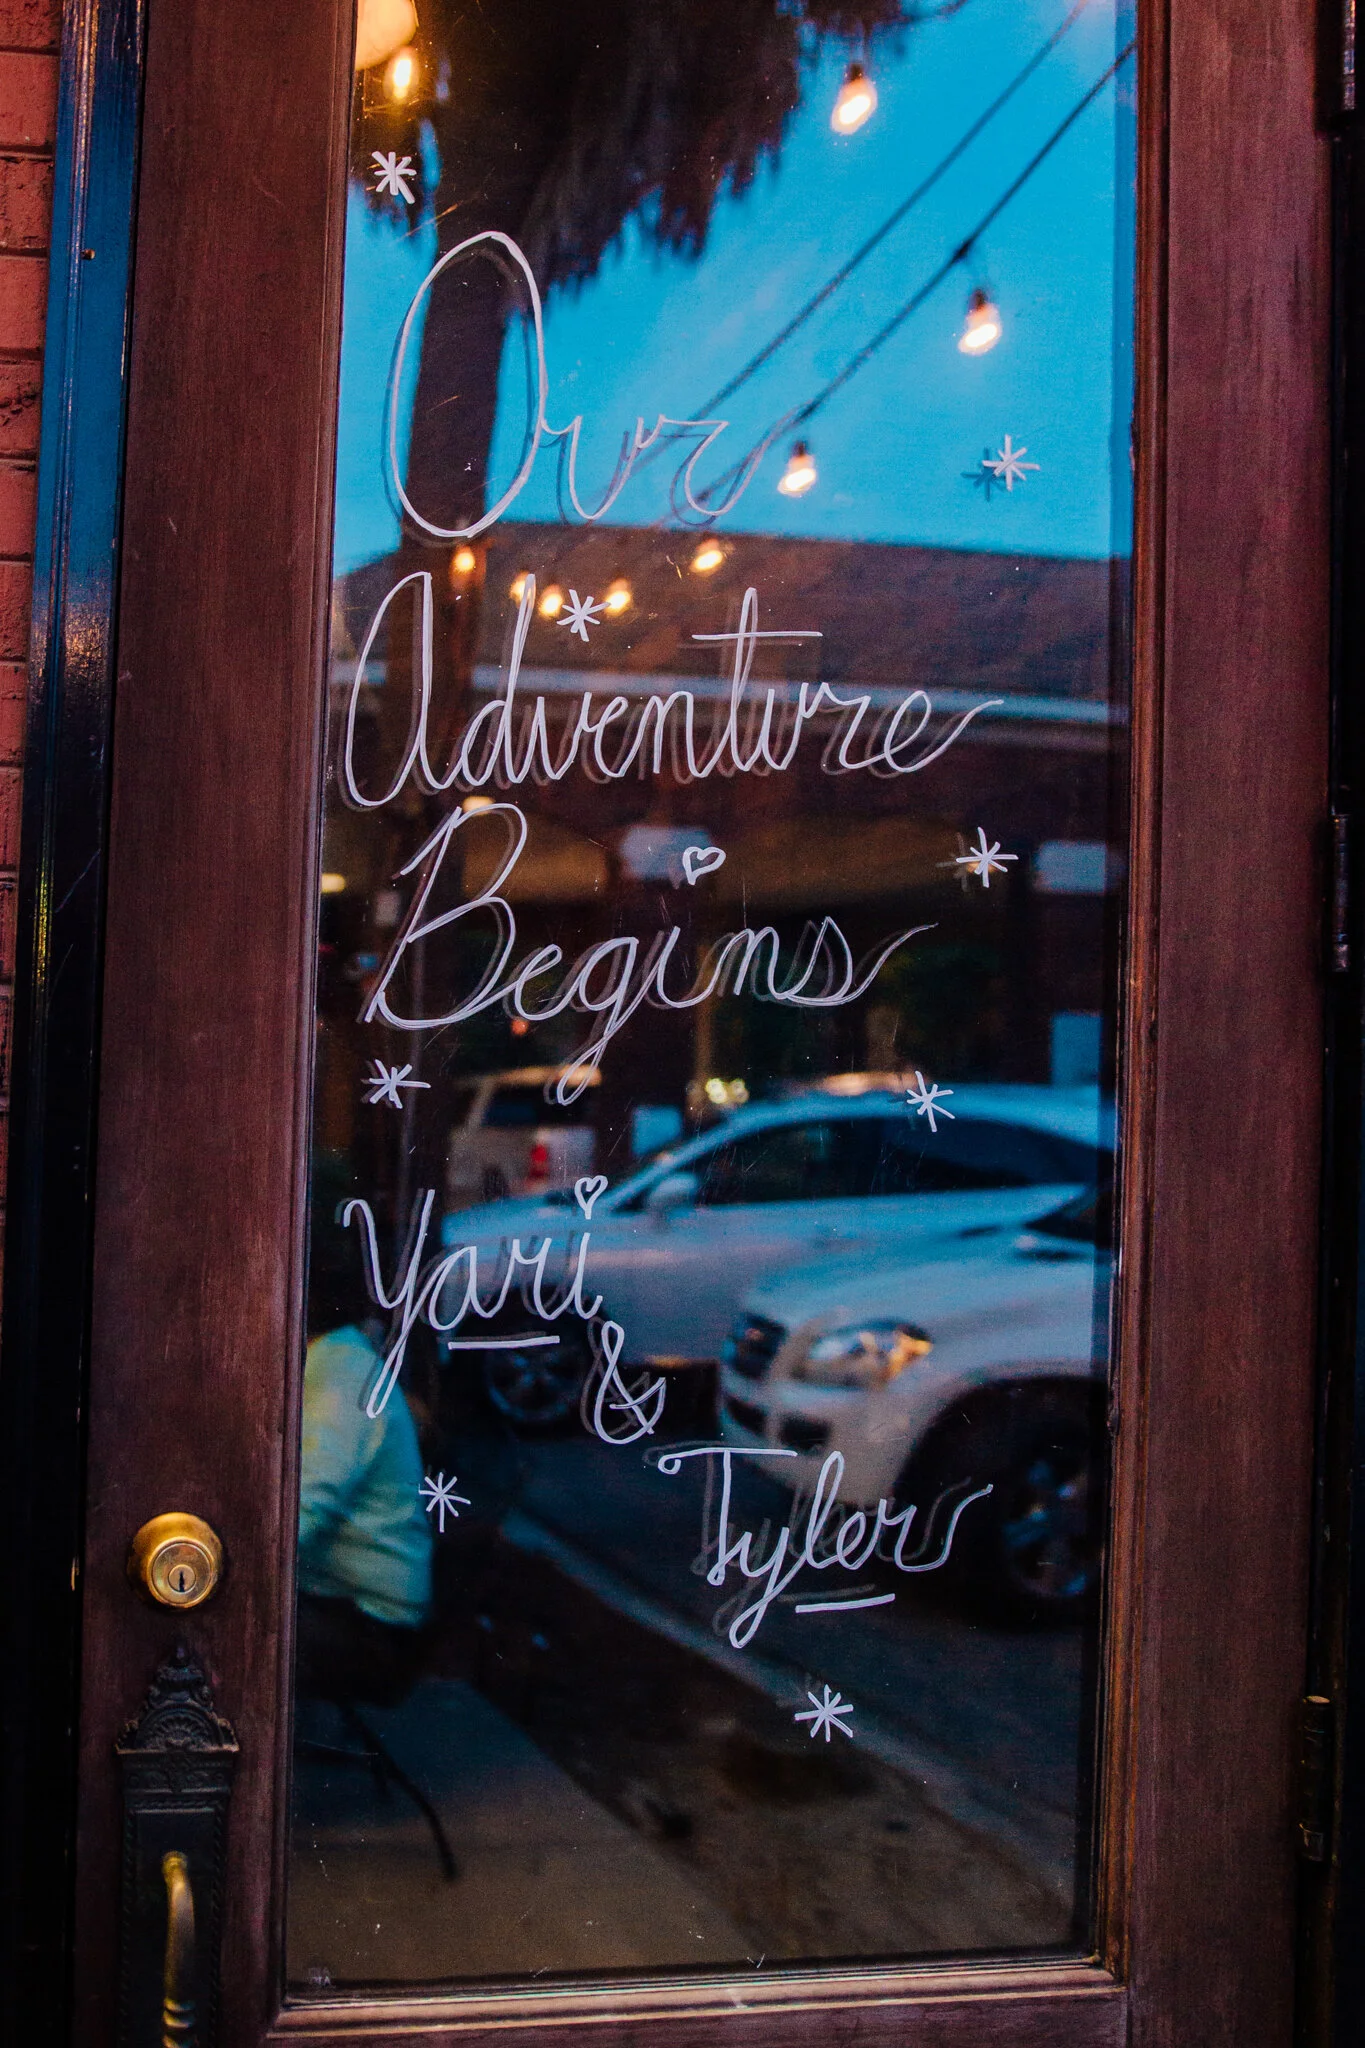 Our
Adventure
Begins
Yari
&
Tyler